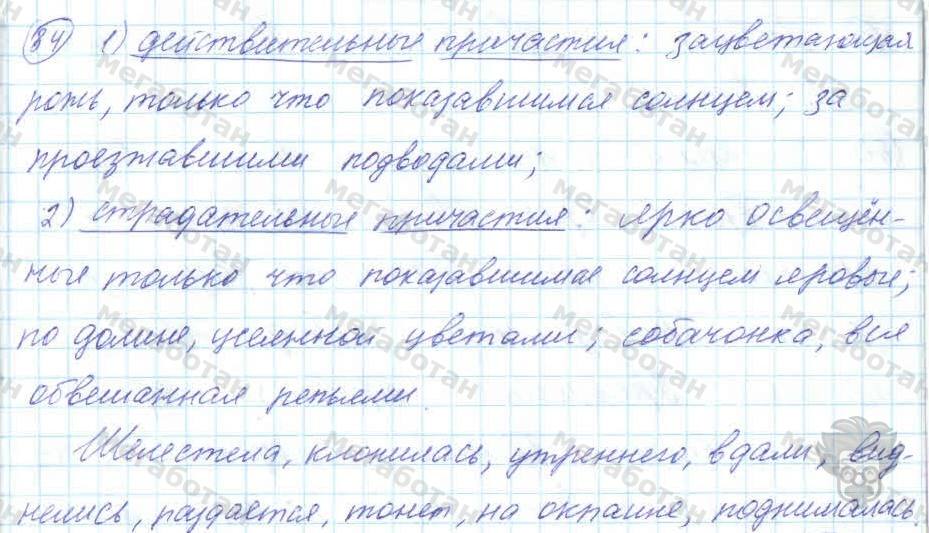 34 1) действительные причастия: зацветающая
рожь, только что показавшимся солнцем; за
проезжавшими подводами;
2) страдательные причастия: ярко освещён-
ные только что показавшимся солнцем яровые;
по долине, усеянной цветами; собачонка, вся
обвешанная репьями.
Шелестела, клонилась, утреннего, вдали, вид-
нелись, раздается, тонет, на окраине, поднималась.
мегаботан